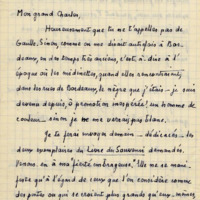 Mon grand Charles,
Heureusement que tu ne t'appelles pas de
Gaulle. Sinon comme on me disait autrefois à Bor-
deaux, en des temps très anciens, c'est à dire à l'
époque où les midinettes, quand elles rencontraient
dans les rues de Bordeaux, le nègre que j'étais – je suis
devenu depuis, ô promotion inespérée! un homme de
couleur – sinon je ne me verrais pas blanc.
Je te ferai envoyer demain – dédicacés – les
deux exemplaires du Livre du Souvenir demandés.
Pense à ma fierté ombrageuse! Elle ne se mani-
feste qu'à l'égard de ceux que l'on considère comme
des pairs ou qui se croient plus grands qu'eux-mêmes